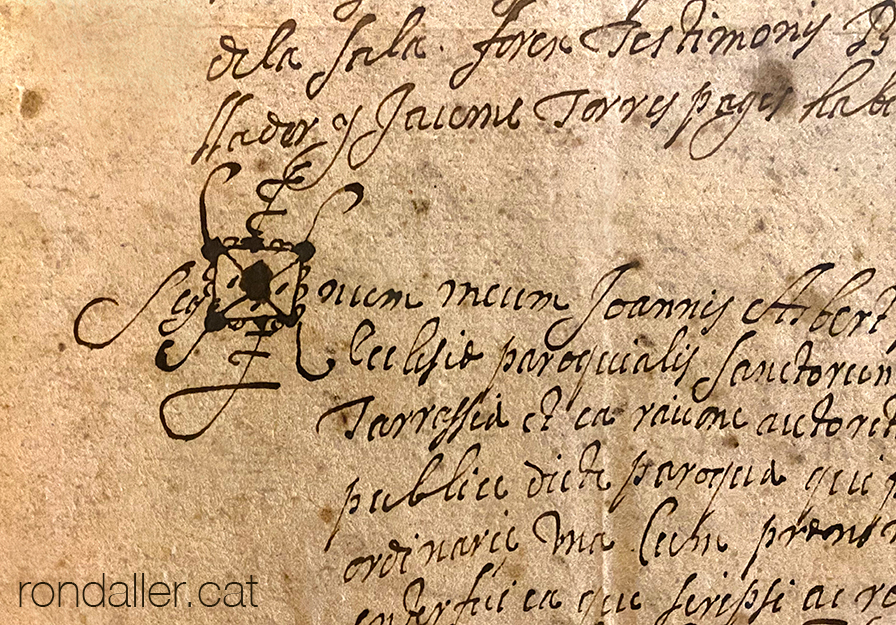 dela sala. foren Testimonis
llador y Jaume Torres pages hab
Sig num meum Joannis Albert
Ecclesie paroquialis Sanctorum
Tarrassia et ea raione autorit
publice dicte paroquia qui
ordinarie ma cum prems
interfui ea que scripsi ac ro
rondaller.cat